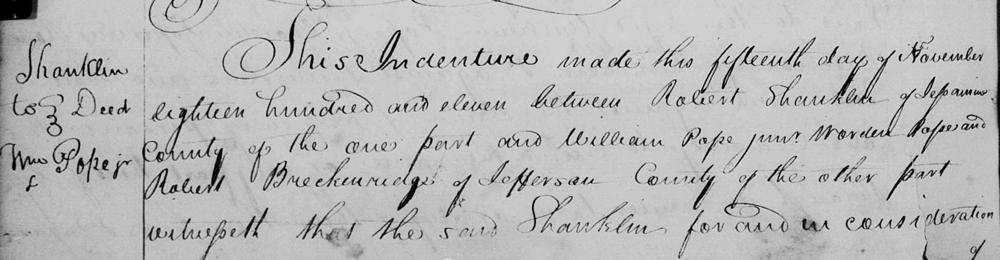 Shanklin
to } Deed
Wm Pope jr
This Indenture made this fifteenth day of November
eighteen hundred and eleven between Robert Shanklin of Jessamine
County of the one part and William Pope junr Worden Pope and
Robert Breckenridge of Jefferson County of the other part
witnesseth that the said Shanklin for and in consideration
of